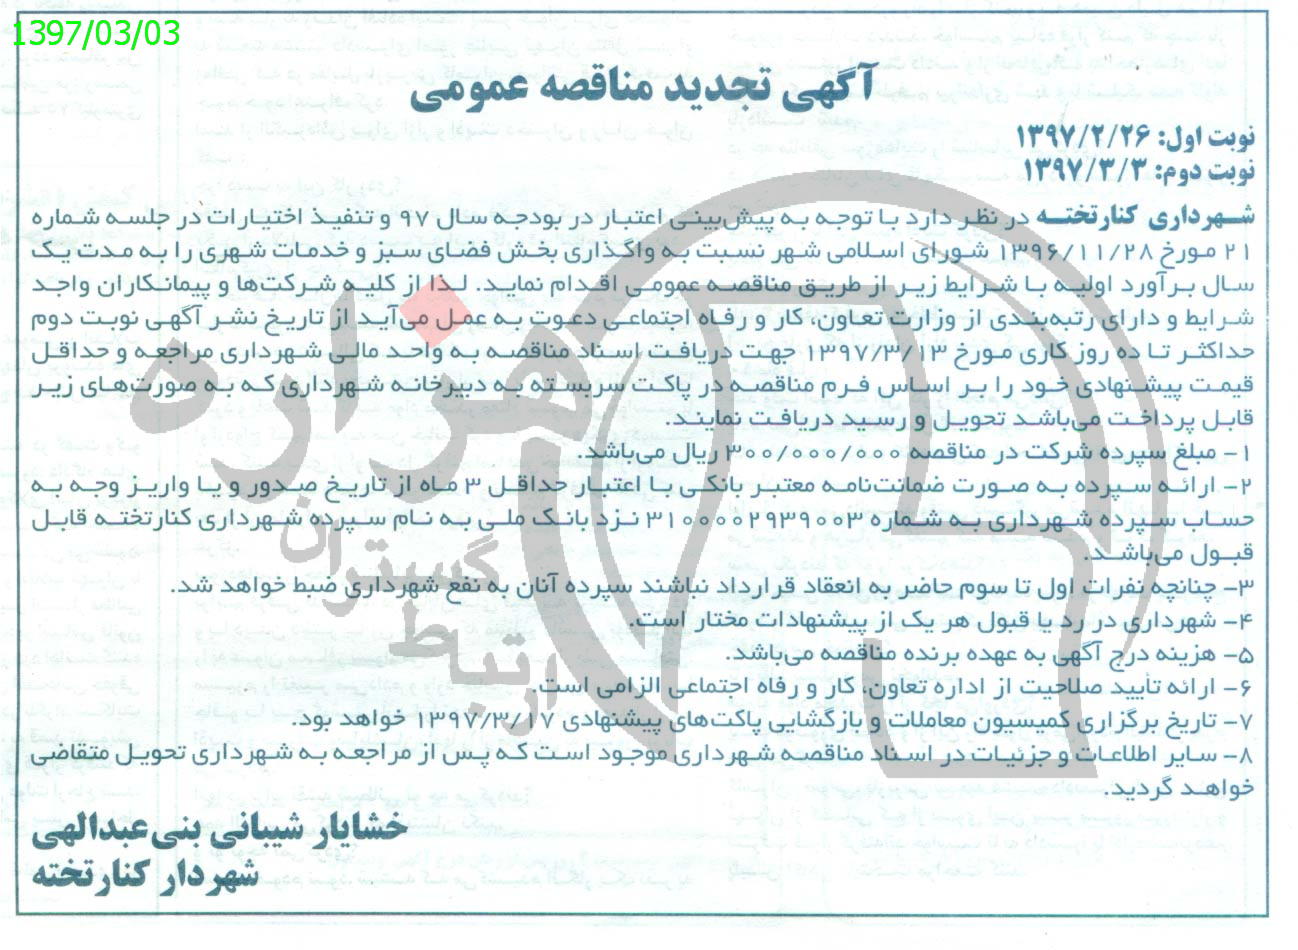 1397/03/03
آگهی تجدید مناقصه عمومی
نوبت اول: ۱۳۹۷/۲/۲۶
نوبت دوم: ۱۳۹۷/۳/۳
شهرداری کنارتخته در نظر دارد با توجه به پیش‌بینی اعتبار در بودجه سال ۹۷ و تنفیذ اختیارات در جلسه شماره
۲۱ مورخ ۱۳۹۶/۱۱/۲۸ شورای اسلامی شهر نسبت به واگذاری بخش فضای سبز و خدمات شهری را به مدت یک
سال برآورد اولیه با شرایط زیر از طریق مناقصه عمومی اقدام نماید. لذا از کلیه شرکت‌ها و پیمانکاران واجد
شرایط و دارای رتبه‌بندی از وزارت تعاون، کار و رفاه اجتماعی دعوت به عمل می‌آید از تاریخ نشر آگهی نوبت دوم
حداکثر تا ده روز کاری مورخ ۱۳۹۷/۳/۱۳ جهت دریافت اسناد مناقصه به واحد مالی شهرداری مراجعه و حداقل
قیمت پیشنهادی خود را بر اساس فرم مناقصه در پاکت سربسته به دبیرخانه شهرداری که به صورت‌های زیر
قابل پرداخت می‌باشد تحویل و رسید دریافت نمایند.
۱- مبلغ سپرده شرکت در مناقصه ۳۰۰/۰۰۰/۰۰۰ ریال می‌باشد.
۲- ارائه سپرده به صورت ضمانت‌نامه معتبر بانکی با اعتبار حداقل ۳ ماه از تاریخ صدور و یا واریز وجه به
حساب سپرده شهرداری به شماره ۳۱۰۰۰۰۲۹۳۹۰۰۳ نزد بانک ملی به نام سپرده شهرداری کنارتخته قابل
قبول می‌باشد.
۳- چنانچه نفرات اول تا سوم حاضر به انعقاد قرارداد نباشند سپرده آنان به نفع شهرداری ضبط خواهد شد.
۴- شهرداری در رد یا قبول هر یک از پیشنهادات مختار است.
۵- هزینه درج آگهی به عهده برنده مناقصه می‌باشد.
۶- ارائه تأیید صلاحیت از اداره تعاون، کار و رفاه اجتماعی الزامی است.
۷- تاریخ برگزاری کمیسیون معاملات و بازگشایی پاکت‌های پیشنهادی ۱۳۹۷/۳/۱۷ خواهد بود.
۸- سایر اطلاعات و جزئیات در اسناد مناقصه شهرداری موجود است که پس از مراجعه به شهرداری تحویل متقاضی
خواهد گردید.
خشایار شیبانی بنی‌عبدالهی
شهردار کنارتخته
هزاره
گستران